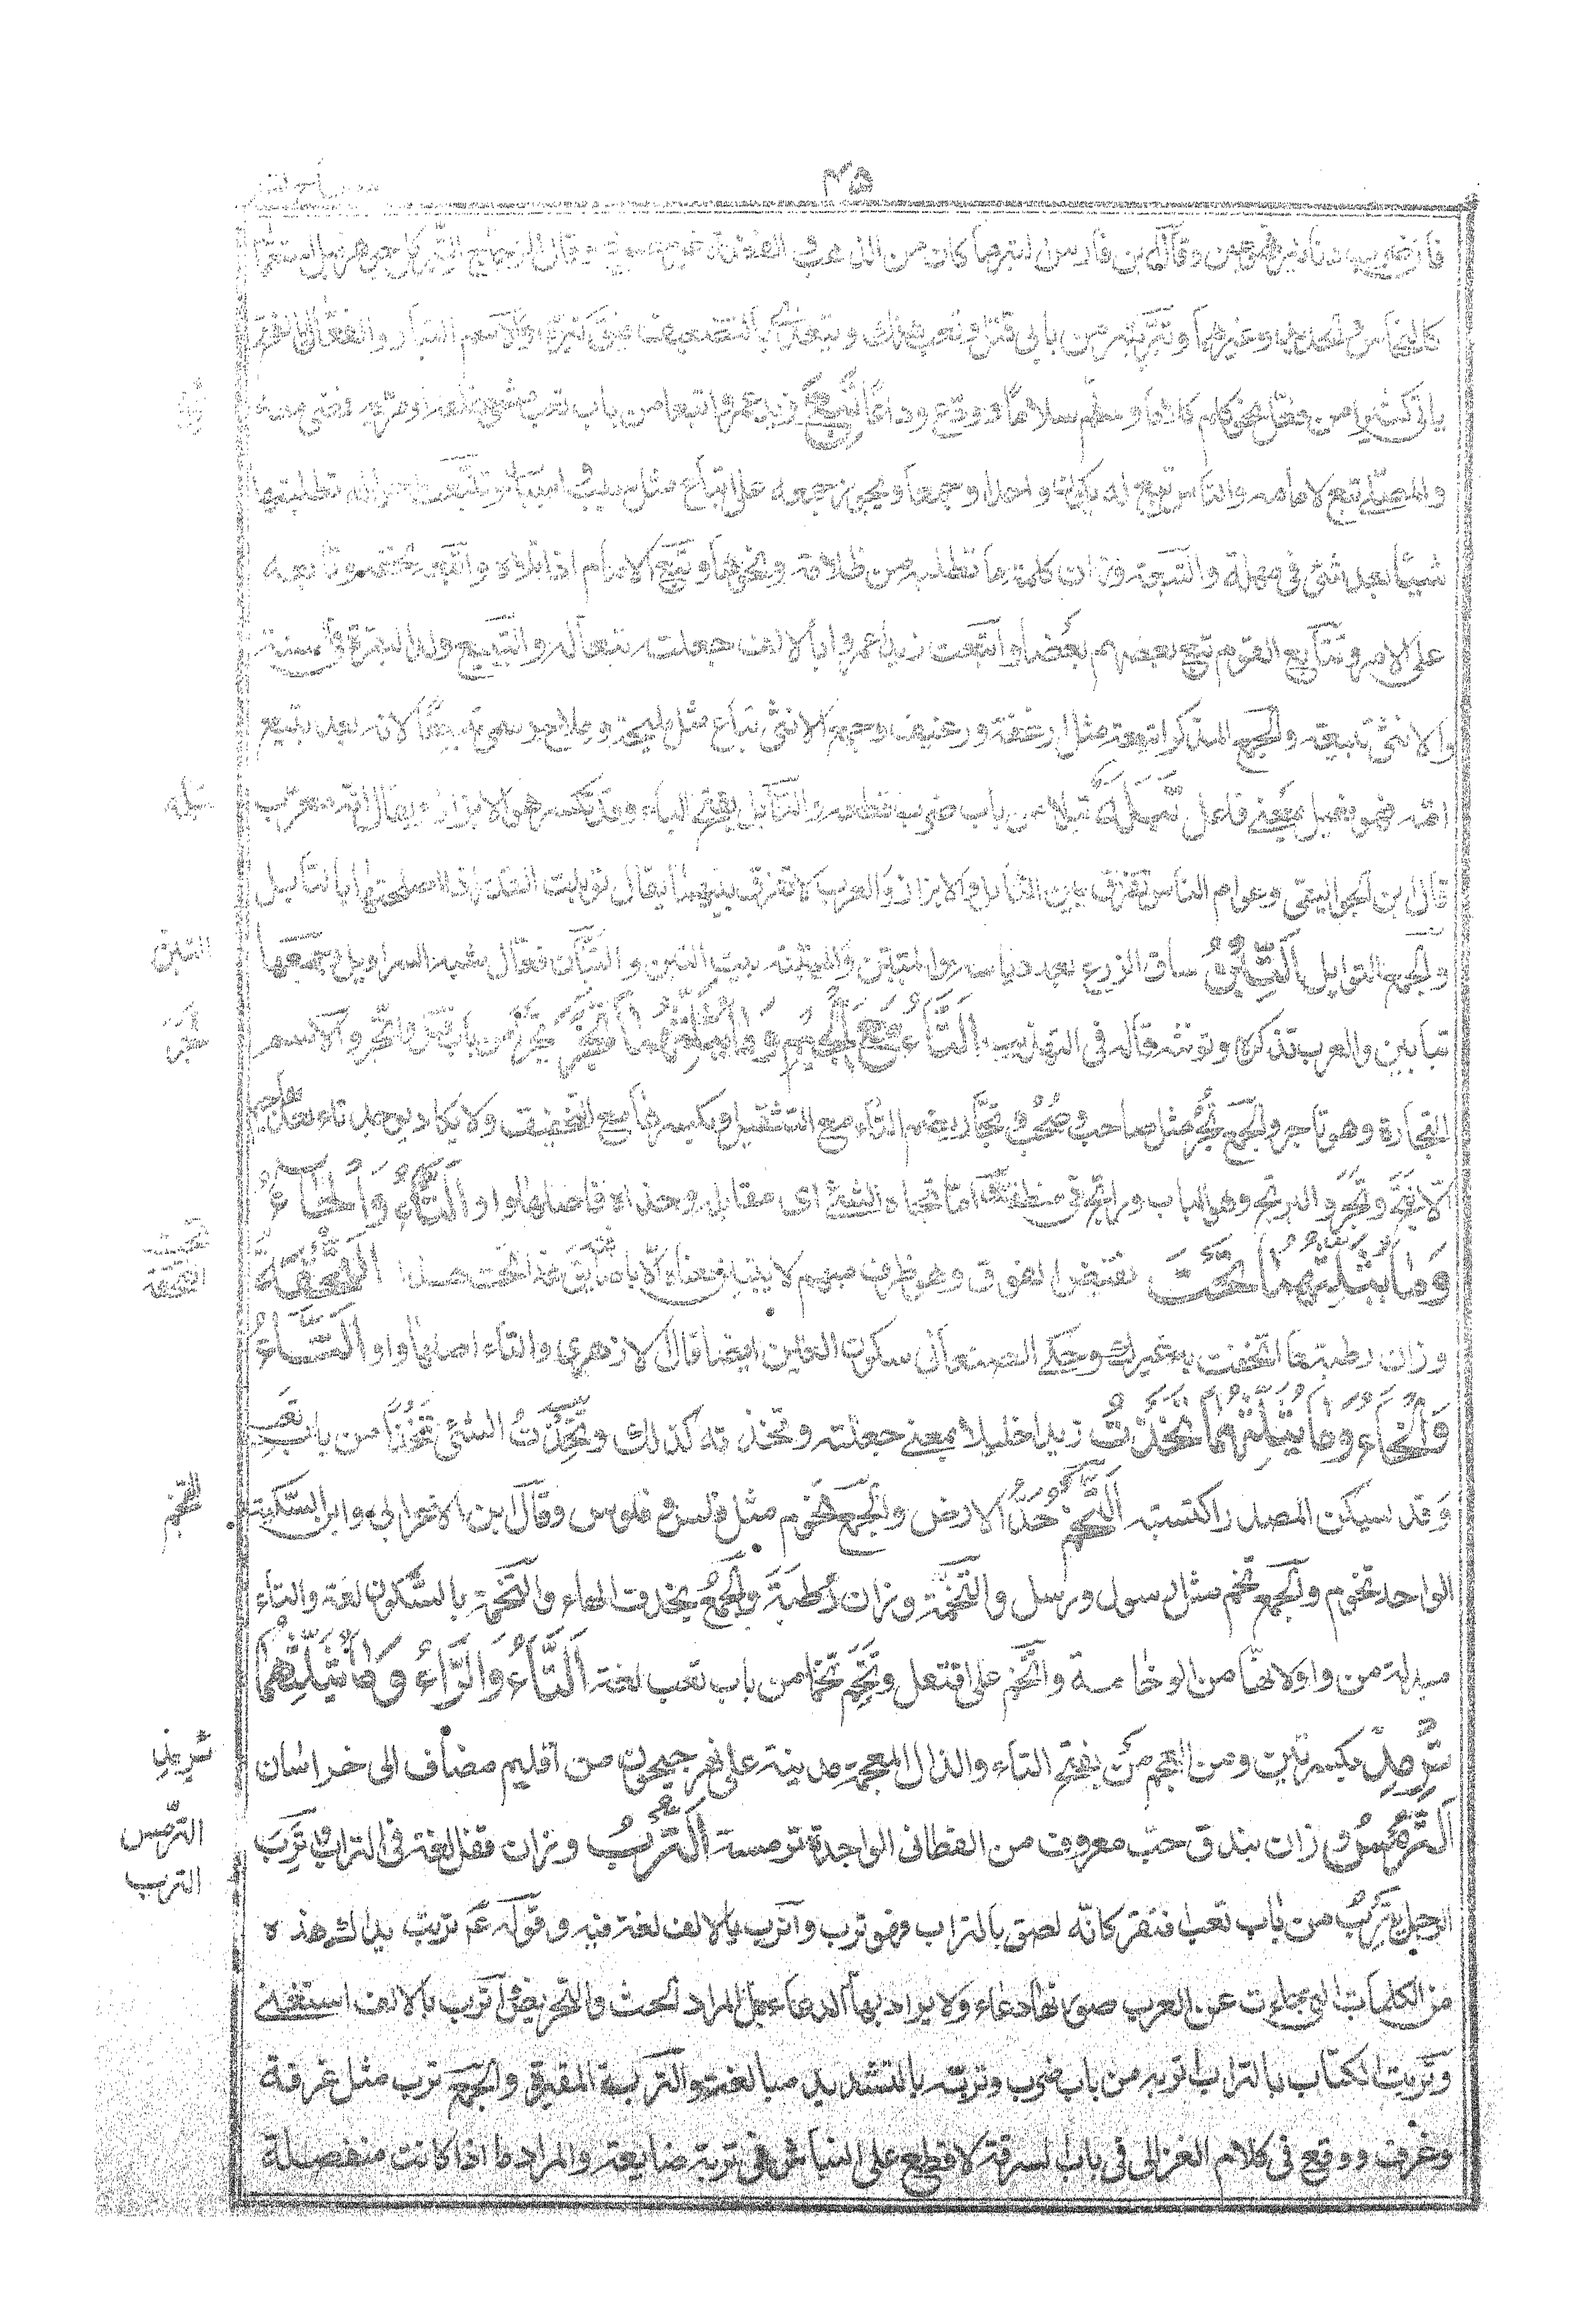 ٤٥
فان ضرب دنانير فهو عين وقال ابن فارس التبر ما كان من الذهب والفضة غير مصوغ وقال الزجاج التبر كل جوهر قبل استعماله
كالنحاس والحديد وغيرهما وتبر يتبر من بابى قتل وتعب هلك ويتعدى بالتضعيف فيقال تبره والاسم التبار والفعال بالفتح
ياتى كثيرا من فعّل نحو كلم كلاما وسلم سلاما وودع وداعا تبع زيد عمرا تبعا من باب تعب مشى خلفه او مر به فمضى معه
والمصلى تبع لامامه والناس تبع له يكون واحدا وجمعا ويجوز جمعه على اتباع مثل سبب واسباب وتتبعت احواله تطلبتها
شيئا بعد شئ فى مهلة والتبعة وزان كلمة ما تطلبه من ظلامة ونحوها وتبع الامام اذا تلاه واتبعه لحقه وتابعه
على الامر وتتابع القوم تبع بعضهم بعضا واتبعت زيدا عمرا بالالف جعلته تبعا له والتبيع ولد البقرة فى سنة
والانثى تبيعة والجمع المذكر اتبعة مثل ارغفة ورغيف وجمع الانثى تباع مثل مليحة وملاح وسمى تبيعا لانه بعد يتبع
امه فهو فعيل بمعنى فاعل تبله تبلا من باب ضرب قطعه والتابل بفتح الباء وقد تكسر هو الابزار ويقال انه معرب
قال ابن الجواليقى وعوام الناس تفرق بين التابل والابزار والعرب لا تفرق بينهما يقال توبلت القدر اذا اصلحتها بالتابل
والجمع التوابل التِّبْنُ ساق الزرع بعد دياسه والمتبن والمتبنة بيت التبن والتبان فعال شبه السراويل وجمعها
تبابين والعرب تذكره وتؤنثه قاله فى التهذيب اَلتَّاءُ مَعَ الْجِيْمِ وَمَا يُثَلِّثُهُمَا تَجَرَ تجرا من باب قتل واتجر والاسم
التجارة وهو تاجر والجمع تجر مثل صاحب وصحب وتجار بضم التاء مع التثقيل وبكسرها مع التخفيف ولا يكاد يوجد تاء بعدها جيم
الا نتج وتجر والرتج وهو الباب ورتج فى منطقه اما تجاه الشئ اى مقابل وحذاه فاصلها واو اَلتَّاءُ وَالْحَاءُ
وَمَا يُثَلِّثُهُمَا تَحْتَ نقيض الفوق وهو ظرف مبهم لا يتبين معناه الا باضافته يقال هذا تحت هذا اَلتُّحْفَةُ
وزان رطبة ما اتحفت به غيرك وحكى الصنعانى سكون العين ايضا قال الازهرى والتاء اصلها واو اَلتَّاءُ
وَالْخَاءُ وَمَا يُثَلِّثُهُمَا تَخَذْتُ زيدا خليلا بمعنى جعلته وتخذته كذلك وتَخِذْتُ الشئ تَخَذًا من باب تعب
وقد يسكن المصدر اكتسبته اَلتَّخْمُ حَدُّ الارض والجمع تخوم مثل فلس وفلوس وقال ابن الاعرابى وابن السكيت
الواحد تخوم والجمع تخم مثل رسول ورسل والتخمة وزان رُطَبَة والجمع بحذف الهاء والتخمة بالسكون لغة والتاء
مبدلة من واو لانها من الوخامة واتخم على افتعل وتخم تخما من باب تعب لغة اَلتَّاءُ وَالرَّاءُ وَمَا يُثَلِّثُهُمَا
تِرْمِذ بكسرتين ومن العجم من بفتح التاء والذال المعجمة مدينة على نهر جيحون من اقليم مضاف الى خراسان
اَلتُّرْمُسُ وزان بندق حب معروف من القطانى الواحدة ترمسة اَلتُّرْبُ وزان قفل لغة فى التراب وتَرِبَ
الرجل يَتْرَبُ من باب تعب افتقر كانه لصق بالتراب فهو ترب واترب بالالف لغة فيه وقوله عم تربت يداك هذه
من الكلمات التى جاءت عن العرب صورتها دعاء ولا يراد بها الدعاء بل المراد الحث والتحريض واترب بالالف استغنى
وتربت الكتاب بالتراب اتربه من باب ضرب وتربته بالتشديد مبالغة والتربة المقبرة والجمع ترب مثل غرفة
وغرف ووقع فى كلام الغزالى فى باب السرقة لا قطع على النباش فى تربة ضايعة والمراد ما اذا كانت منفصلة
تبله
التبن
تجر
تحت
التحفة
التخم
ترمذ
الترمس
الترب